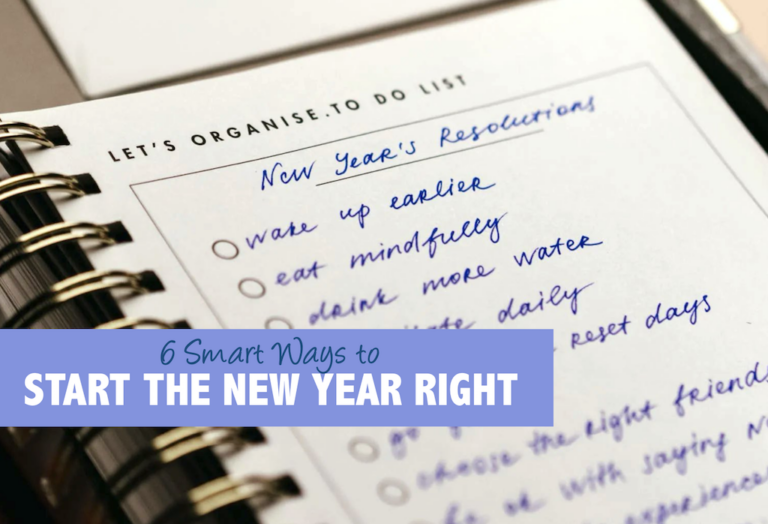 LET'S ORGANISE.TO DO LIST
New Year's Resolutions
wake up earlier
eat mindfully
drink more water
daily
reset days
6 Smart Ways to
START THE NEW YEAR RIGHT
choose the right friends
be ok with saying
experience